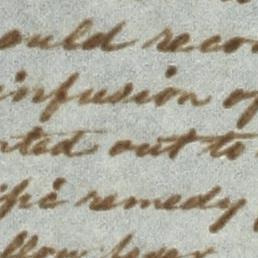 ould reco
infusion of
nted out to
ific remedy
llow fever